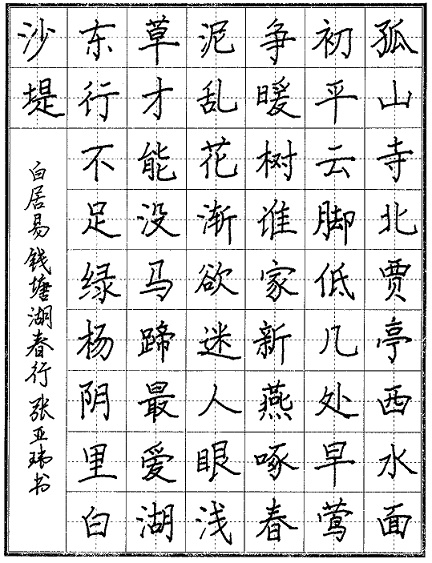 孤山寺北贾亭西水面
初平云脚低几处早莺
争暖树谁家新燕啄春
泥乱花渐欲迷人眼浅
草才能没马蹄最爱湖
东行不足绿杨阴里白
沙堤
白居易钱塘湖春行 张亚玮书